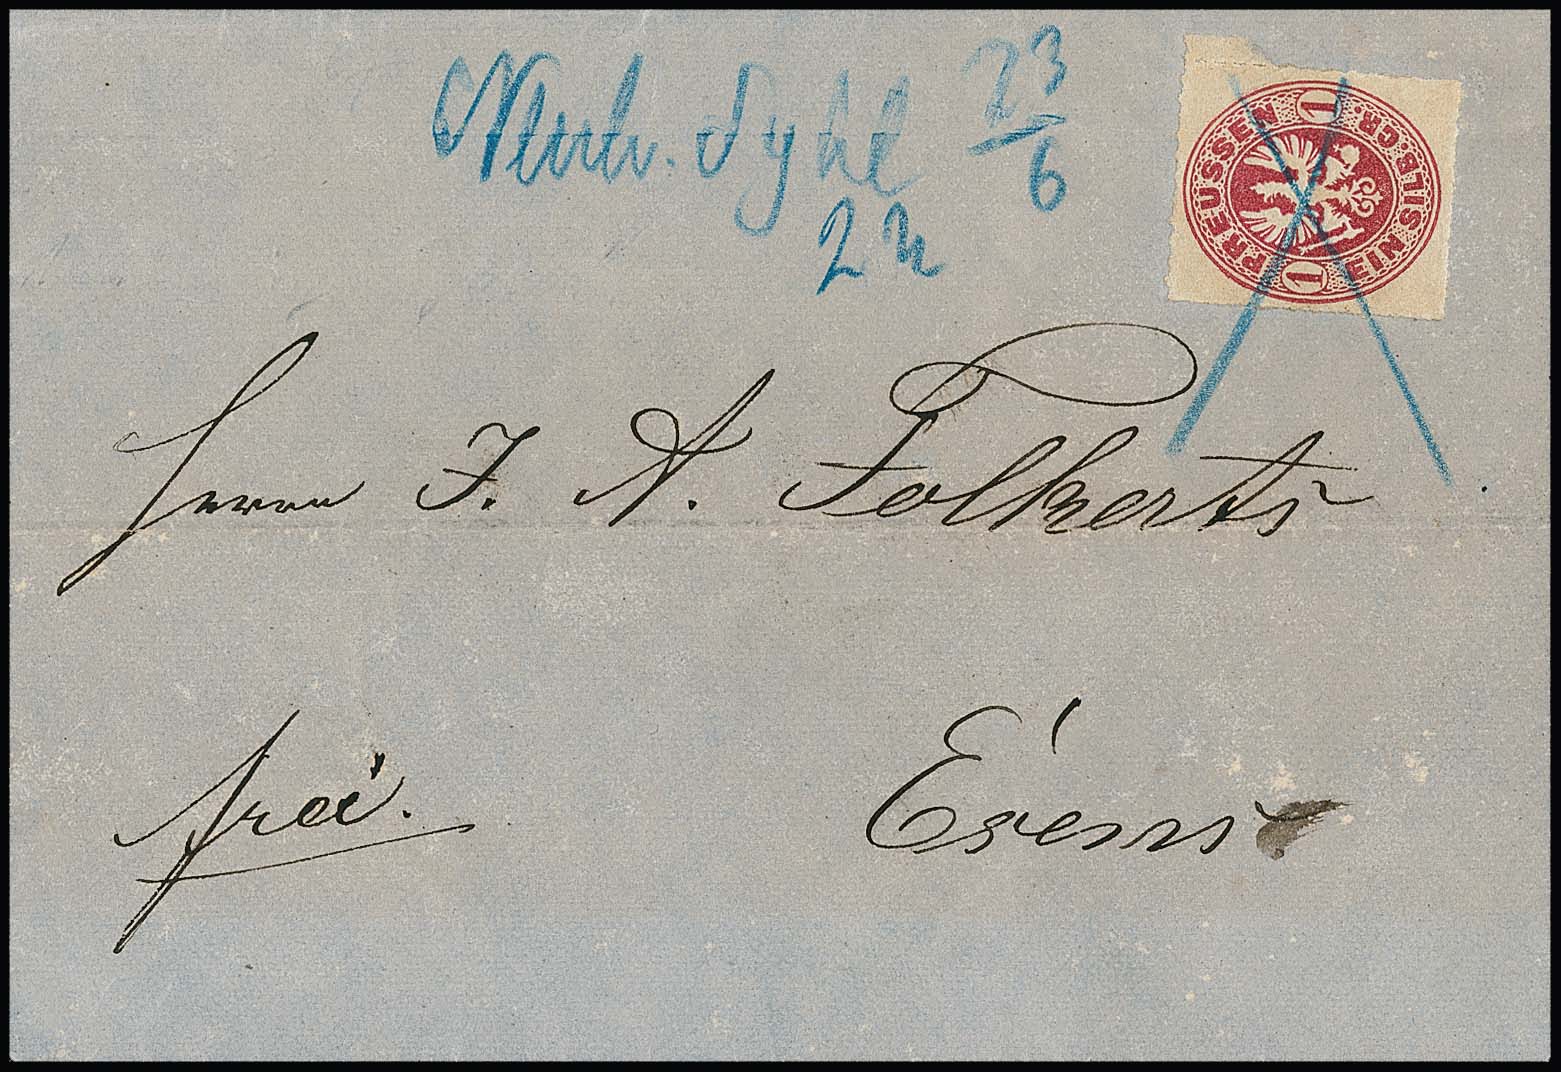 Neuh. Syhl 23/6
2 N
PREUSSEN 1 EIN SILB.GR. 1
Herrn J. A. Folkerts
frei.
Esens